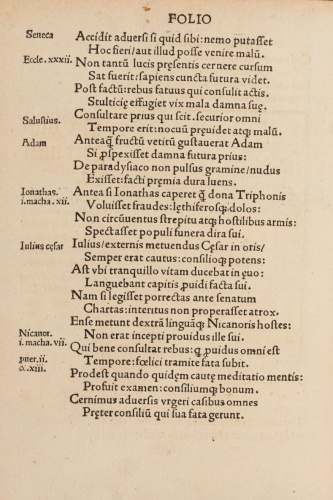 FOLIO
Seneca
Accidit adversi si quid sibi: nemo putasset
Hoc fieri/aut illud posse venire malū.
Eccle. xxxii.
Non tantū lucis presentis cernere cursum
Sat fuerit: sapiens cuncta futura videt.
Post factū: rebus fatuus qui consulit actis
Stulticię effugiet vix mala damna suę.
Consultare prius qui scit. securior omni
Salustius.
Tempore erit: nocuū preuidet atq; malū.
Adam
Anteaq̄ fructū vetitū gustauerat Adam
Si ꝓspexisset damna futura prius:
De paradysiaco non pulsus gramine/nudus
Exisset: facti premia dura luens.
Ionathas.
Antea si Ionathas caperet q̄ dona Triphonis
i.macha. xii.
Voluisset fraudes: lęthiferosq; dolos:
Non circūuentus strepitu atq; hostilibus armis:
Spectasset populi funera dira sui.
Iulius cęsar
Iulius/externis metuendus Cęsar in oris/
Semper erat cautus: consilioq; potens:
Ast vbi tranquillo vitam ducebat in ęuo:
Languebant capitis ꝓuidi facta sui.
Nam si legisset porrectas ante senatum
Chartas: interitus non properasset atrox.
Ense metunt dextrā linguāq; Nicanoris hostes:
Nicanor.
Non erat incepti prouidus ille sui.
i. macha. vii.
Qui bene consultat rebus: q; ꝓuidus omni est
ꝓuer. ii.
Tempore: fœlici tramite fata subit.
&. xiii.
Prodest quando quidem caute meditatio mentis:
Profuit examen: consiliumq; bonum.
Cernimus adversis vrgeri casibus omnes
Pręter consiliū qui sua fata gerunt.